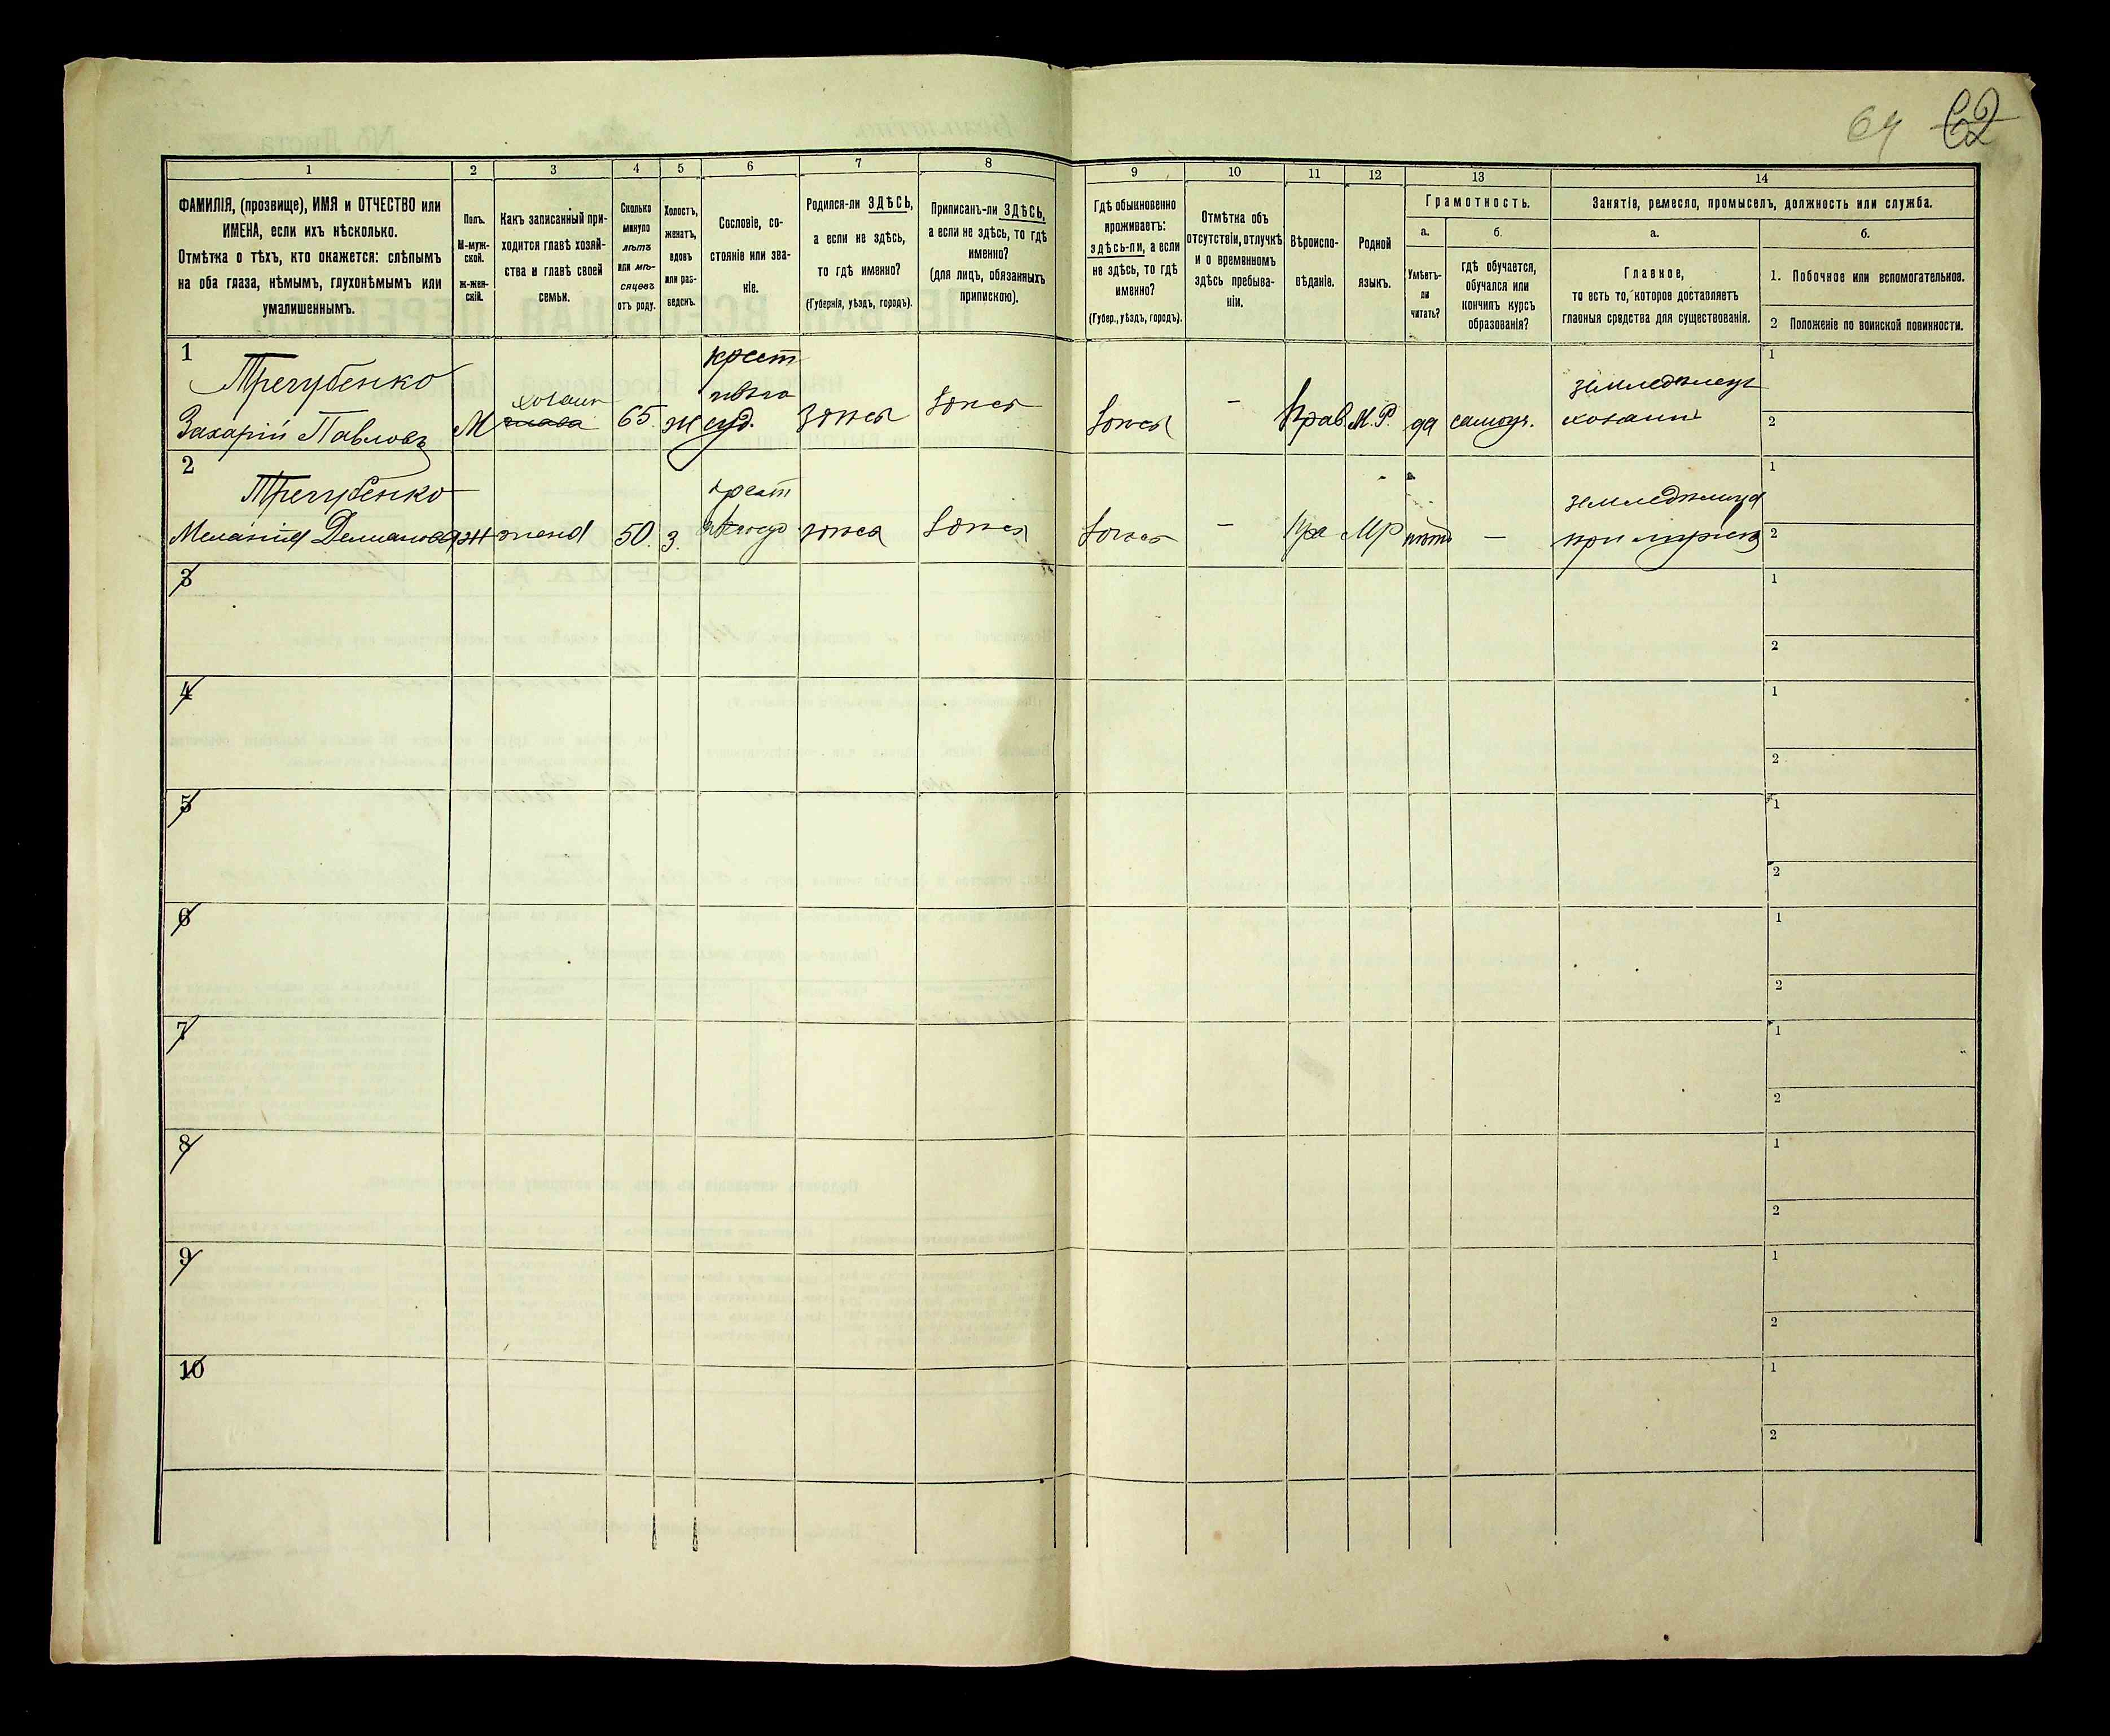 64 62
1 2 3 4 5 6 7 8 9 10 11 12 13 14
ФАМИЛІЯ, (прозвище), ИМЯ и ОТЧЕСТВО или
ИМЕНА, если ихъ нѣсколько.
Отмѣтка о тѣхъ, кто окажется: слѣпымъ
на оба глаза, нѣмымъ, глухонѣмымъ или
умалишеннымъ.
Полъ.
М-муж-
ской.
ж-жен-
скій.
Какъ записанный при-
ходится главѣ хозяй-
ства и главѣ своей
семьи.
Сколько
минуло
лѣтъ
или мѣ-
сяцевъ
отъ роду.
Холостъ,
женатъ,
вдовъ
или раз-
веденъ.
Сословіе, со-
стояніе или зва-
ніе.
Родился-ли ЗДѢСЬ,
а если не здѣсь,
то гдѣ именно?
(Губернія, уѣздъ, городъ).
Приписанъ-ли ЗДѢСЬ,
а если не здѣсь, то гдѣ
именно?
(для лицъ, обязанныхъ
припискою).
Гдѣ обыкновенно
проживаетъ:
здѣсь-ли, а если
не здѣсь, то гдѣ
именно?
(Губер., уѣздъ, городъ).
Отмѣтка объ
отсутствіи, отлучкѣ
и о временномъ
здѣсь пребыва-
ніи.
Вѣроиспо-
вѣданіе.
Родной
языкъ.
Грамотность.
а.
Умѣетъ-
ли
читать?
б.
гдѣ обучается,
обучался или
кончилъ курсъ
образованія?
Занятіе, ремесло, промыселъ, должность или служба.
а.
Главное,
то есть то, которое доставляетъ
главныя средства для существованія.
б.
1. Побочное или вспомогательное.
2 Положеніе по воинской повинности.
1
Тречубенко
Захарій Павловъ
М
хозяин
глава
65.
ж
крест
суд.
здеся
здеся
здеся
–
Прав.
М.Р.
да
самоуч.
земледелецъ
хозаинъ
1
2
2
Тречубенко
Меланія Демианова
ж
жена
50.
з.
крест
здеся
здеся
здеся
–
Пра
МР
нѣтъ
–
земледелица
1
2
3
1
2
4
1
2
5
1
2
6
1
2
7
1
2
8
1
2
9
1
2
10
1
2